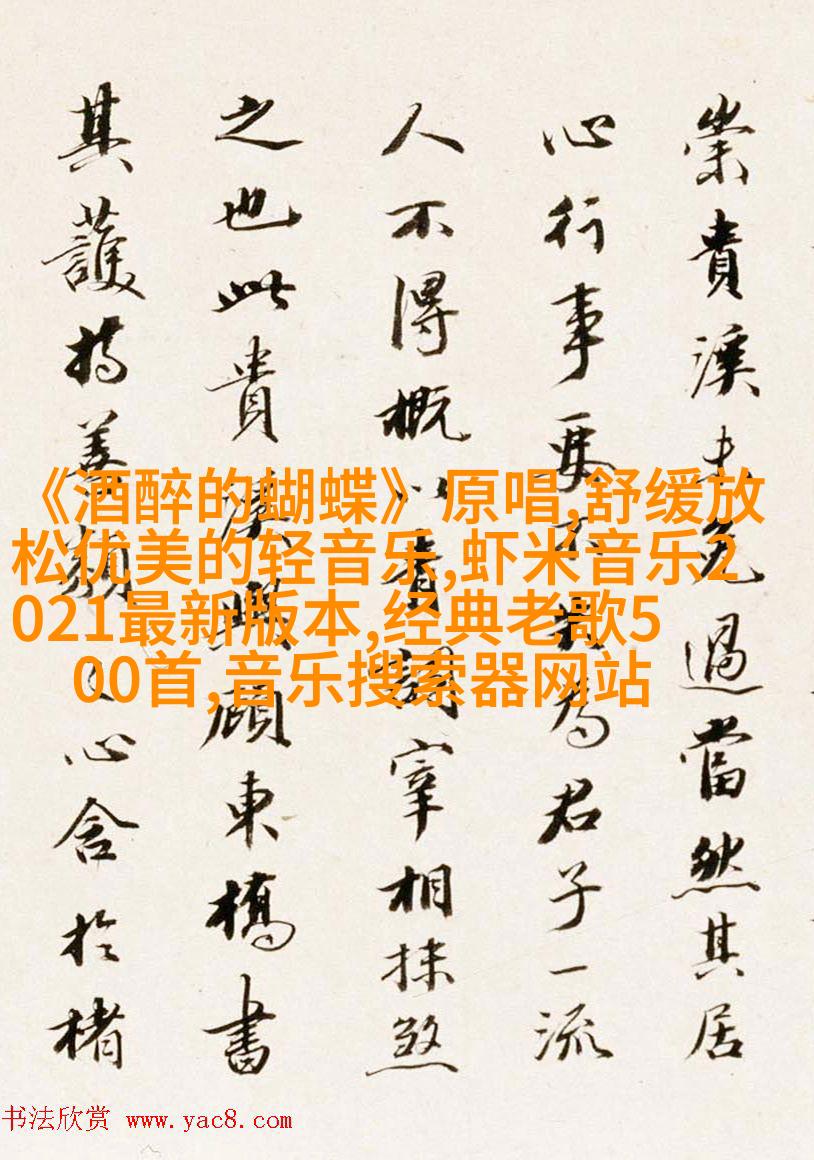 崇貴溪未免過當然其居
心行事要不失為君子一流
人不得概以青詞宰相抹煞
之也此貴溪與顧東橋書
其護持善類之心含於楮
《酒醉的蝴蝶》原唱,舒缓放
松优美的轻音乐,虾米音乐2
021最新版本,经典老歌5
00首,音乐搜索器网站
书法欣赏 www.yac8.com